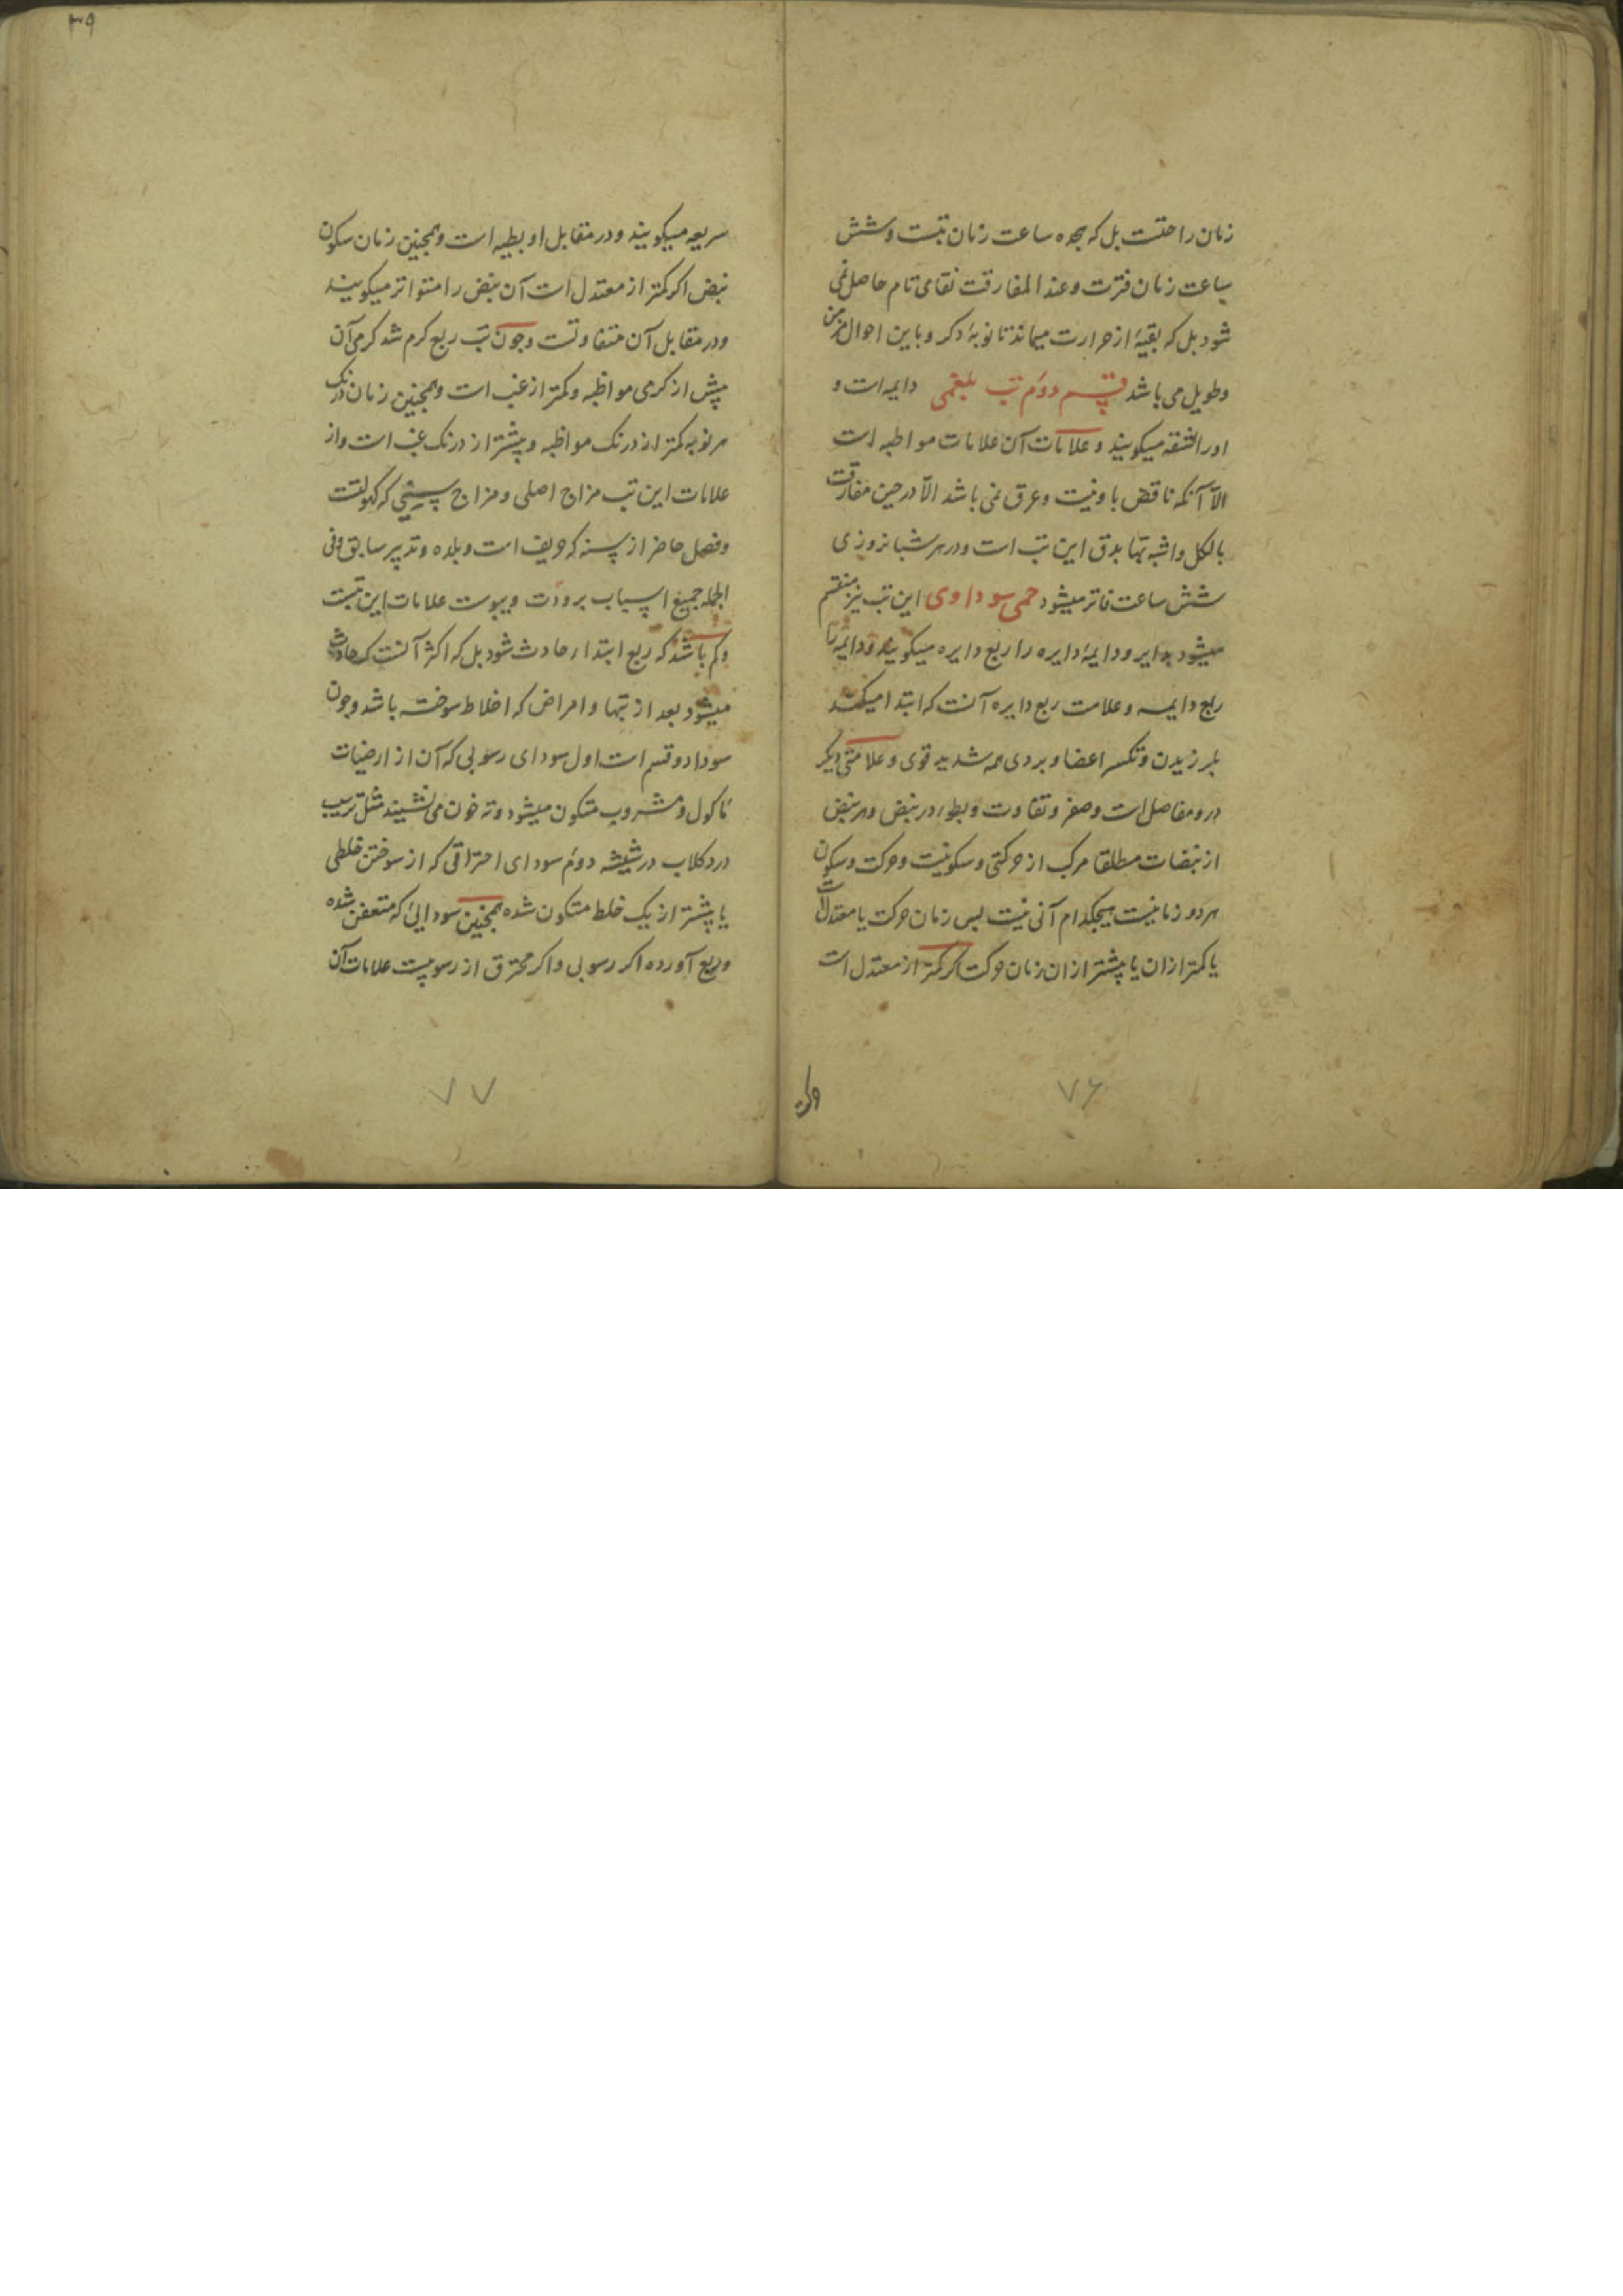 زمان راحتست بل که هجده ساعت زمان تبست و شش
ساعت زمان فترت و عند المفارقت نقای تام حاصل نمی
شود بل که بقیهٔ از حرارت میماند تا نوبهٔ دکر و با این احوال مزمن
و طویل می باشد قسم دوم تب بلغمی دایمه است و
اورا لثقه میکویند و علامات آن علامات مواظبه است
الا آنکه ناقض با او نیست و عرق نمی باشد الا در حین مفارقت
بالکل و اشبه تبها بدق این تب است و در هر شبانروزی
شش ساعت فاتر میشود حمی سوداوی این تب نیز منقسم
میشود بدایر و دایمهٔ دایره را ربع دایره میکویند و دایمه را
ربع دایمه و علامت ربع دایره آنست که ابتدا میکند
بلرزیدن و تکسر اعضا و بردی همه شدید قوی و علامتی دیکر
درو مفاصل است و صغر و تفاوت و بطوء در نبض و هر نبض
از نبضات مطلقا مرکب از حرکتی و سکونیست و حرکت و سکون
هر دو زمانیست هیچکدام آنی نیست پس زمان حرکت یا معتدل است
یا کمتر از ان یا بیشتر از ان زمان حرکت اکر کمتر از معتدل است
۷۶
۳۹
سریعه میکویند و در مقابل او بطیه است و همچنین زمان سکون
نبض اکر کمتر از معتدل است آن نبض را متواتر میکویند
و در مقابل آن متفاوتست و چون تب ربع کرم شد کرمی آن
بیش از کرمی مواظبه و کمتر از غب است و همچنین زمان درنک
هر نوبه کمتر از درنک مواظبه و بیشتر از درنک غب است و از
علامات این تب مزاج اصلی و مزاج سنی که کهولتست
و فصل حاضر از سنه که خریف است و بلده و تدبیر سابق و فی
الجمله جمیع اسباب برودت و یبوست علامات این تبست
و کم باشد که ربع ابتداء حادث شود بل که اکثر آنست که حادث
میشود بعد از تبها و امراض که اخلاط سوخته باشد و چون
سودا دو قسم است اول سودای رسوبی که آن از ارضیات
ماکول و مشروب متکون میشود و ته خون می نشیند مثل ترسب
درد کلاب در شیشه دوم سودای احتراقی که از سوختن خلطی
یا بیشتر از یک خلط متکون شده همچنین سودایی که متعفن شده
و ربع آورده اکر رسوبی و اکر محترق از رسوبیست علامات آن
۷۷